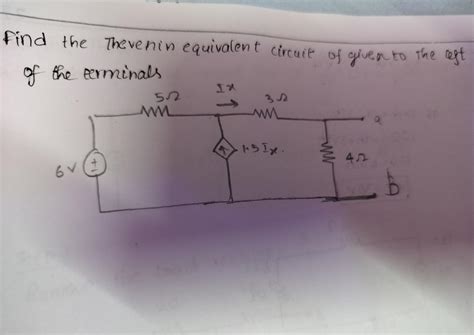 Find the Thevenin equivalent circuit of given to the left
of the terminals
Ix
5Ω
3Ω
a
1.5Ix.
4Ω
6V
b